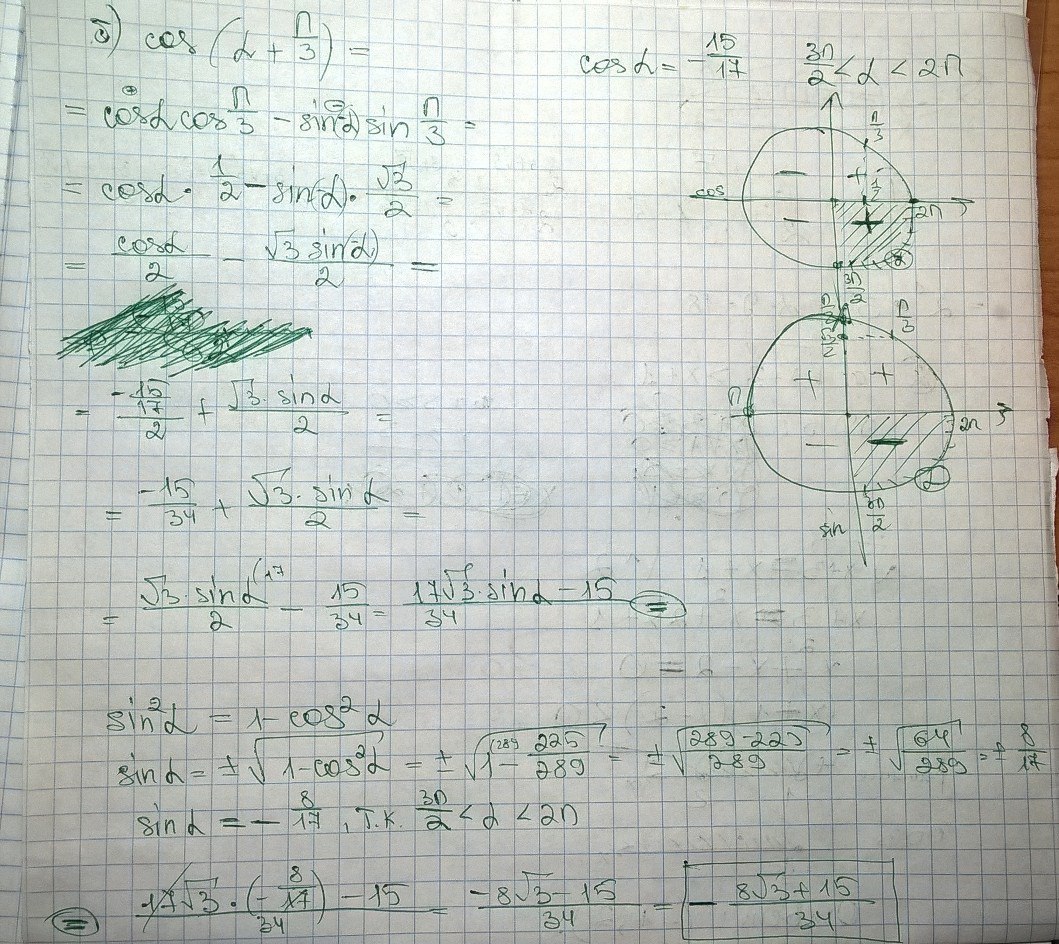 б) cos (α + π/3) =
cos α = - 15/17   3π/2 < α < 2π
= cos α cos π/3 - sin(-α) sin π/3 =
= cos α · 1/2 - sin(-α) · √3/2 =
= cos α/2 - √3 sin(-α)/2 =
= (-15/17)/2 + √3 · sin α/2 =
= -15/34 + √3 · sin α/2 =
= √3 · sin α/2 (17 - 15/34 = (17√3 · sin α - 15)/34 =
cos
- + π/3
1/2
- + 2π
α
3π/2
π/2 π/3
√3/2
+ +
π 2π
- -
α
sin 3π/2
sin²α = 1 - cos²α
sin α = ±√(1 - cos²α) = ±√(1 (289 - 225/289) = ±√((289-225)/289) = ±√(64/289) = ± 8/17
sin α = - 8/17, т.к. 3π/2 < α < 2π
= (17√3 · (- 8/17) - 15)/34 = (-8√3 - 15)/34 = - (8√3 + 15)/34